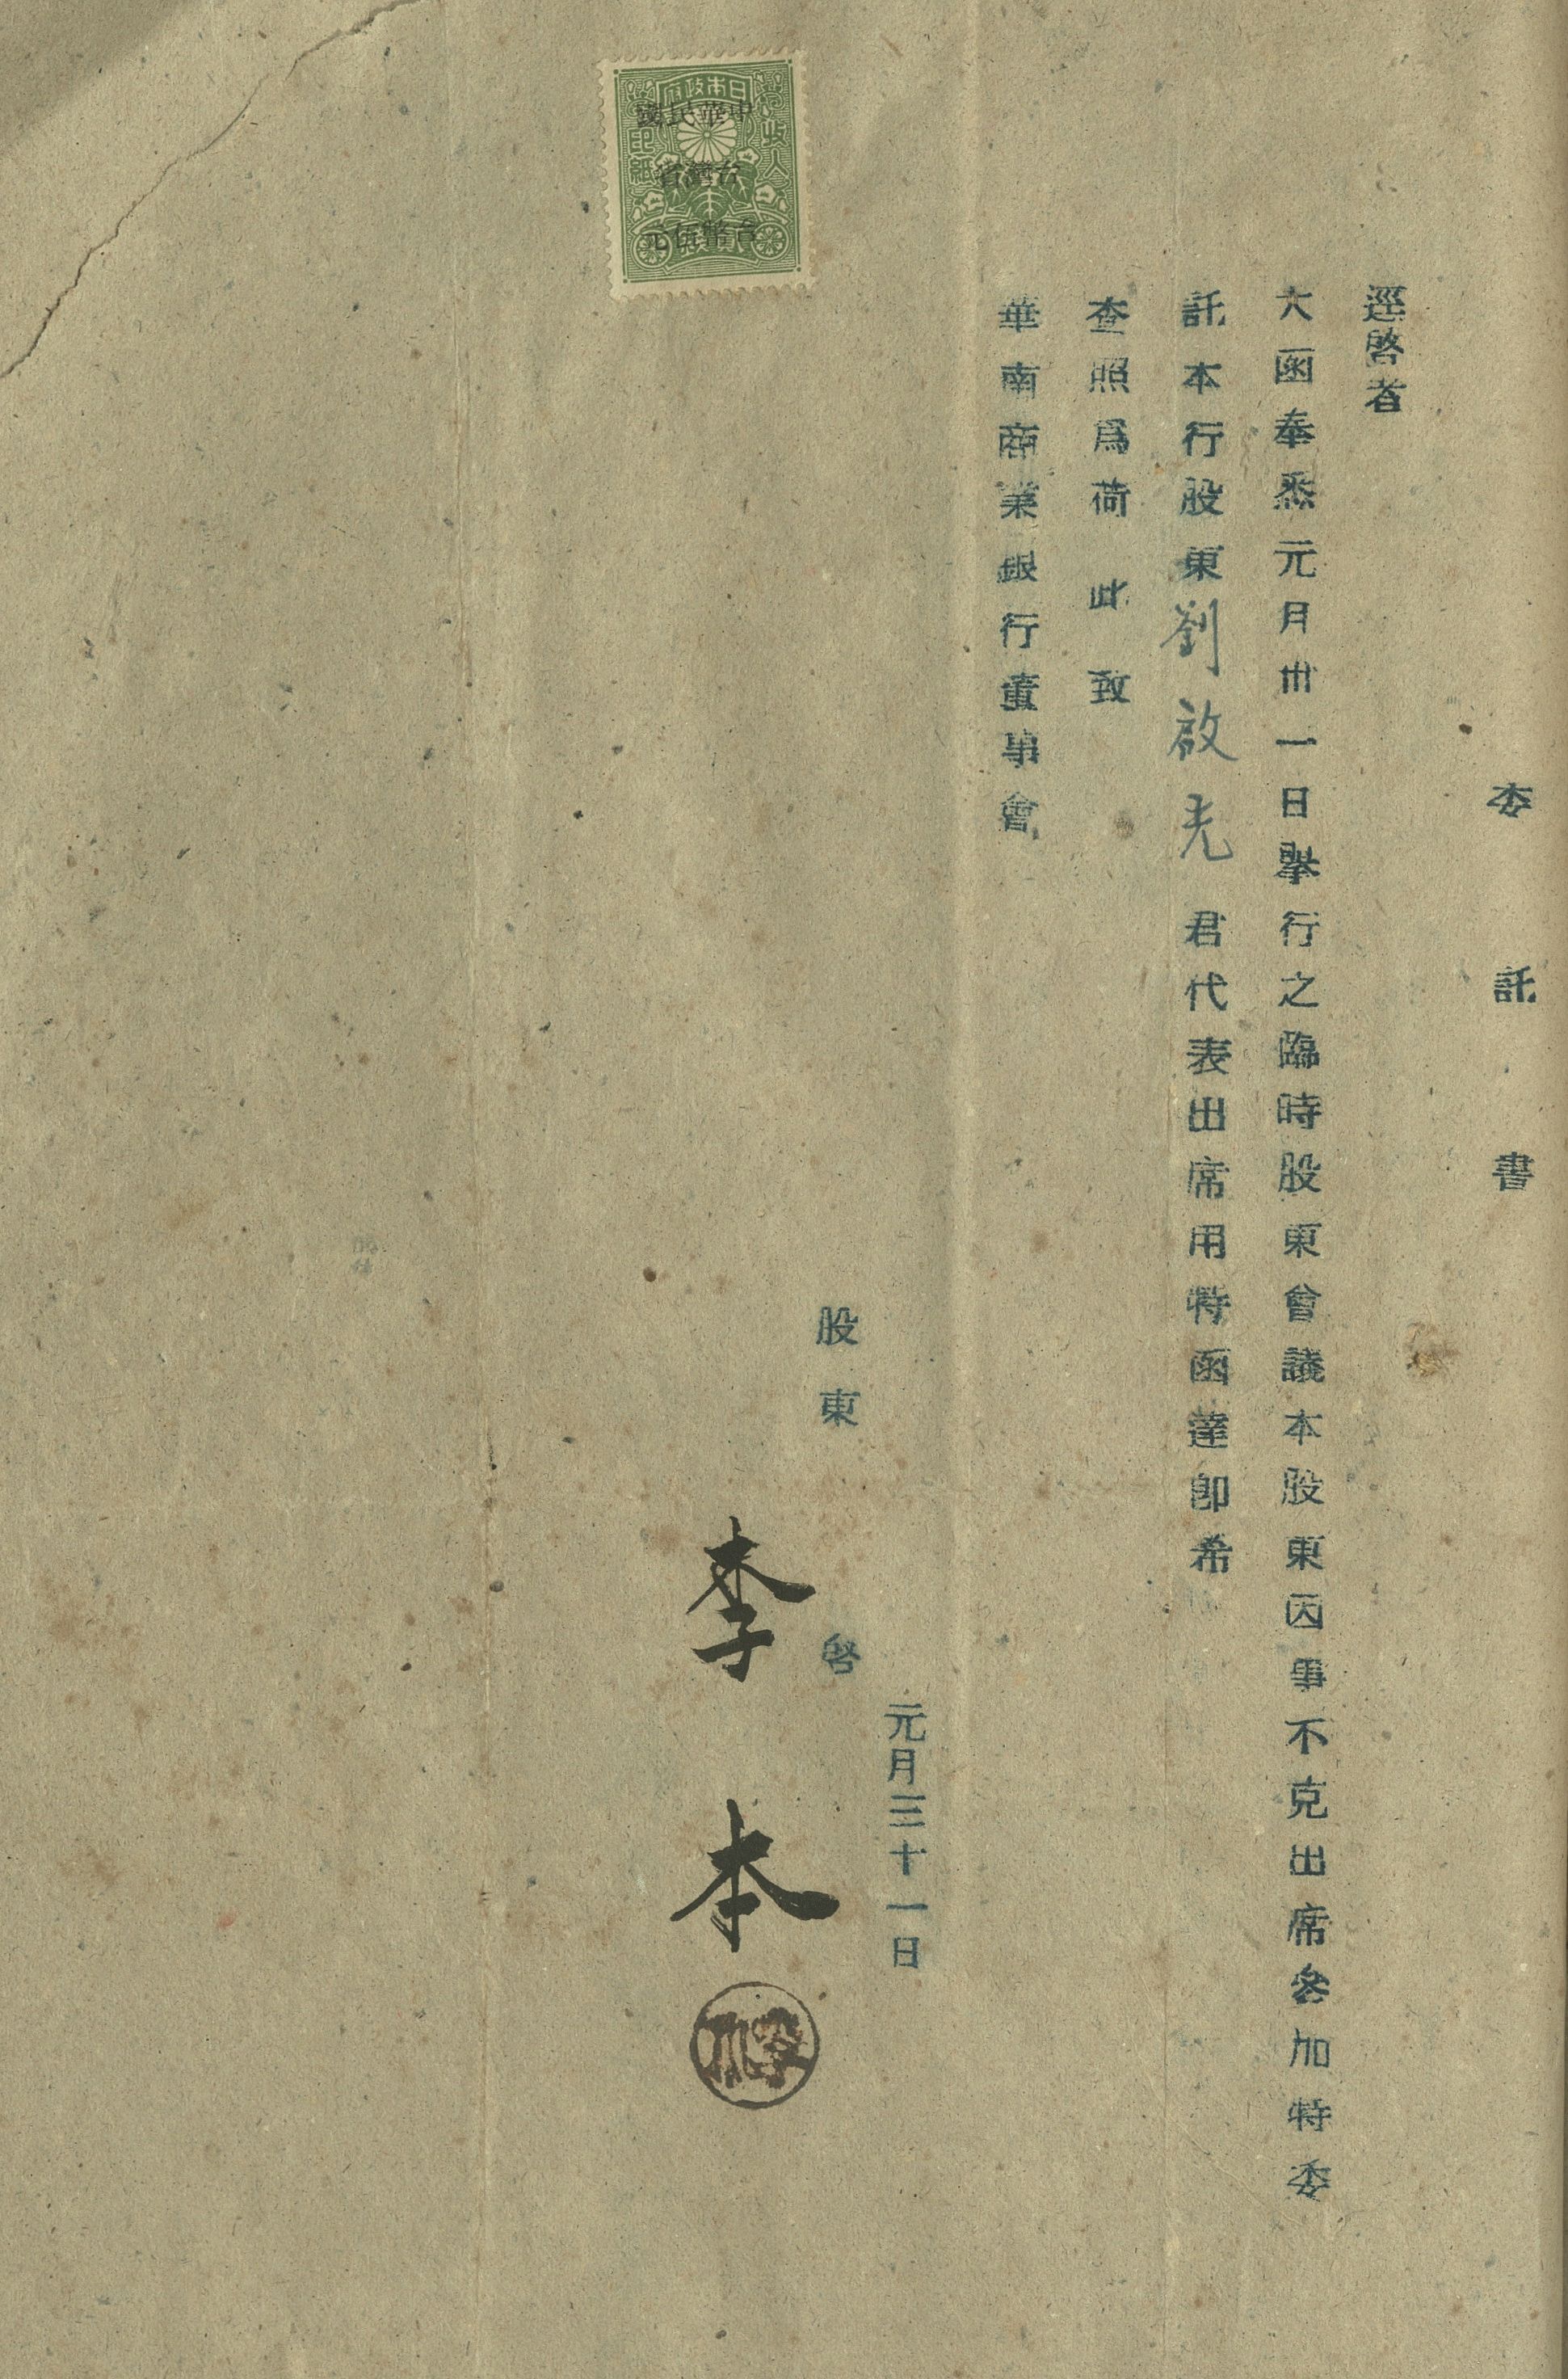 委託書
逕啓者
大函奉悉元月卅一日舉行之臨時股東會議本股東因事不克出席參加特委
託本行股東劉啟光君代表出席用特函達即希
查照爲荷 此致
華南商業銀行董事會
元月三十一日
股東 啓
李本
日本政府
收入
印紙
中華民國
台灣省
台幣伍元